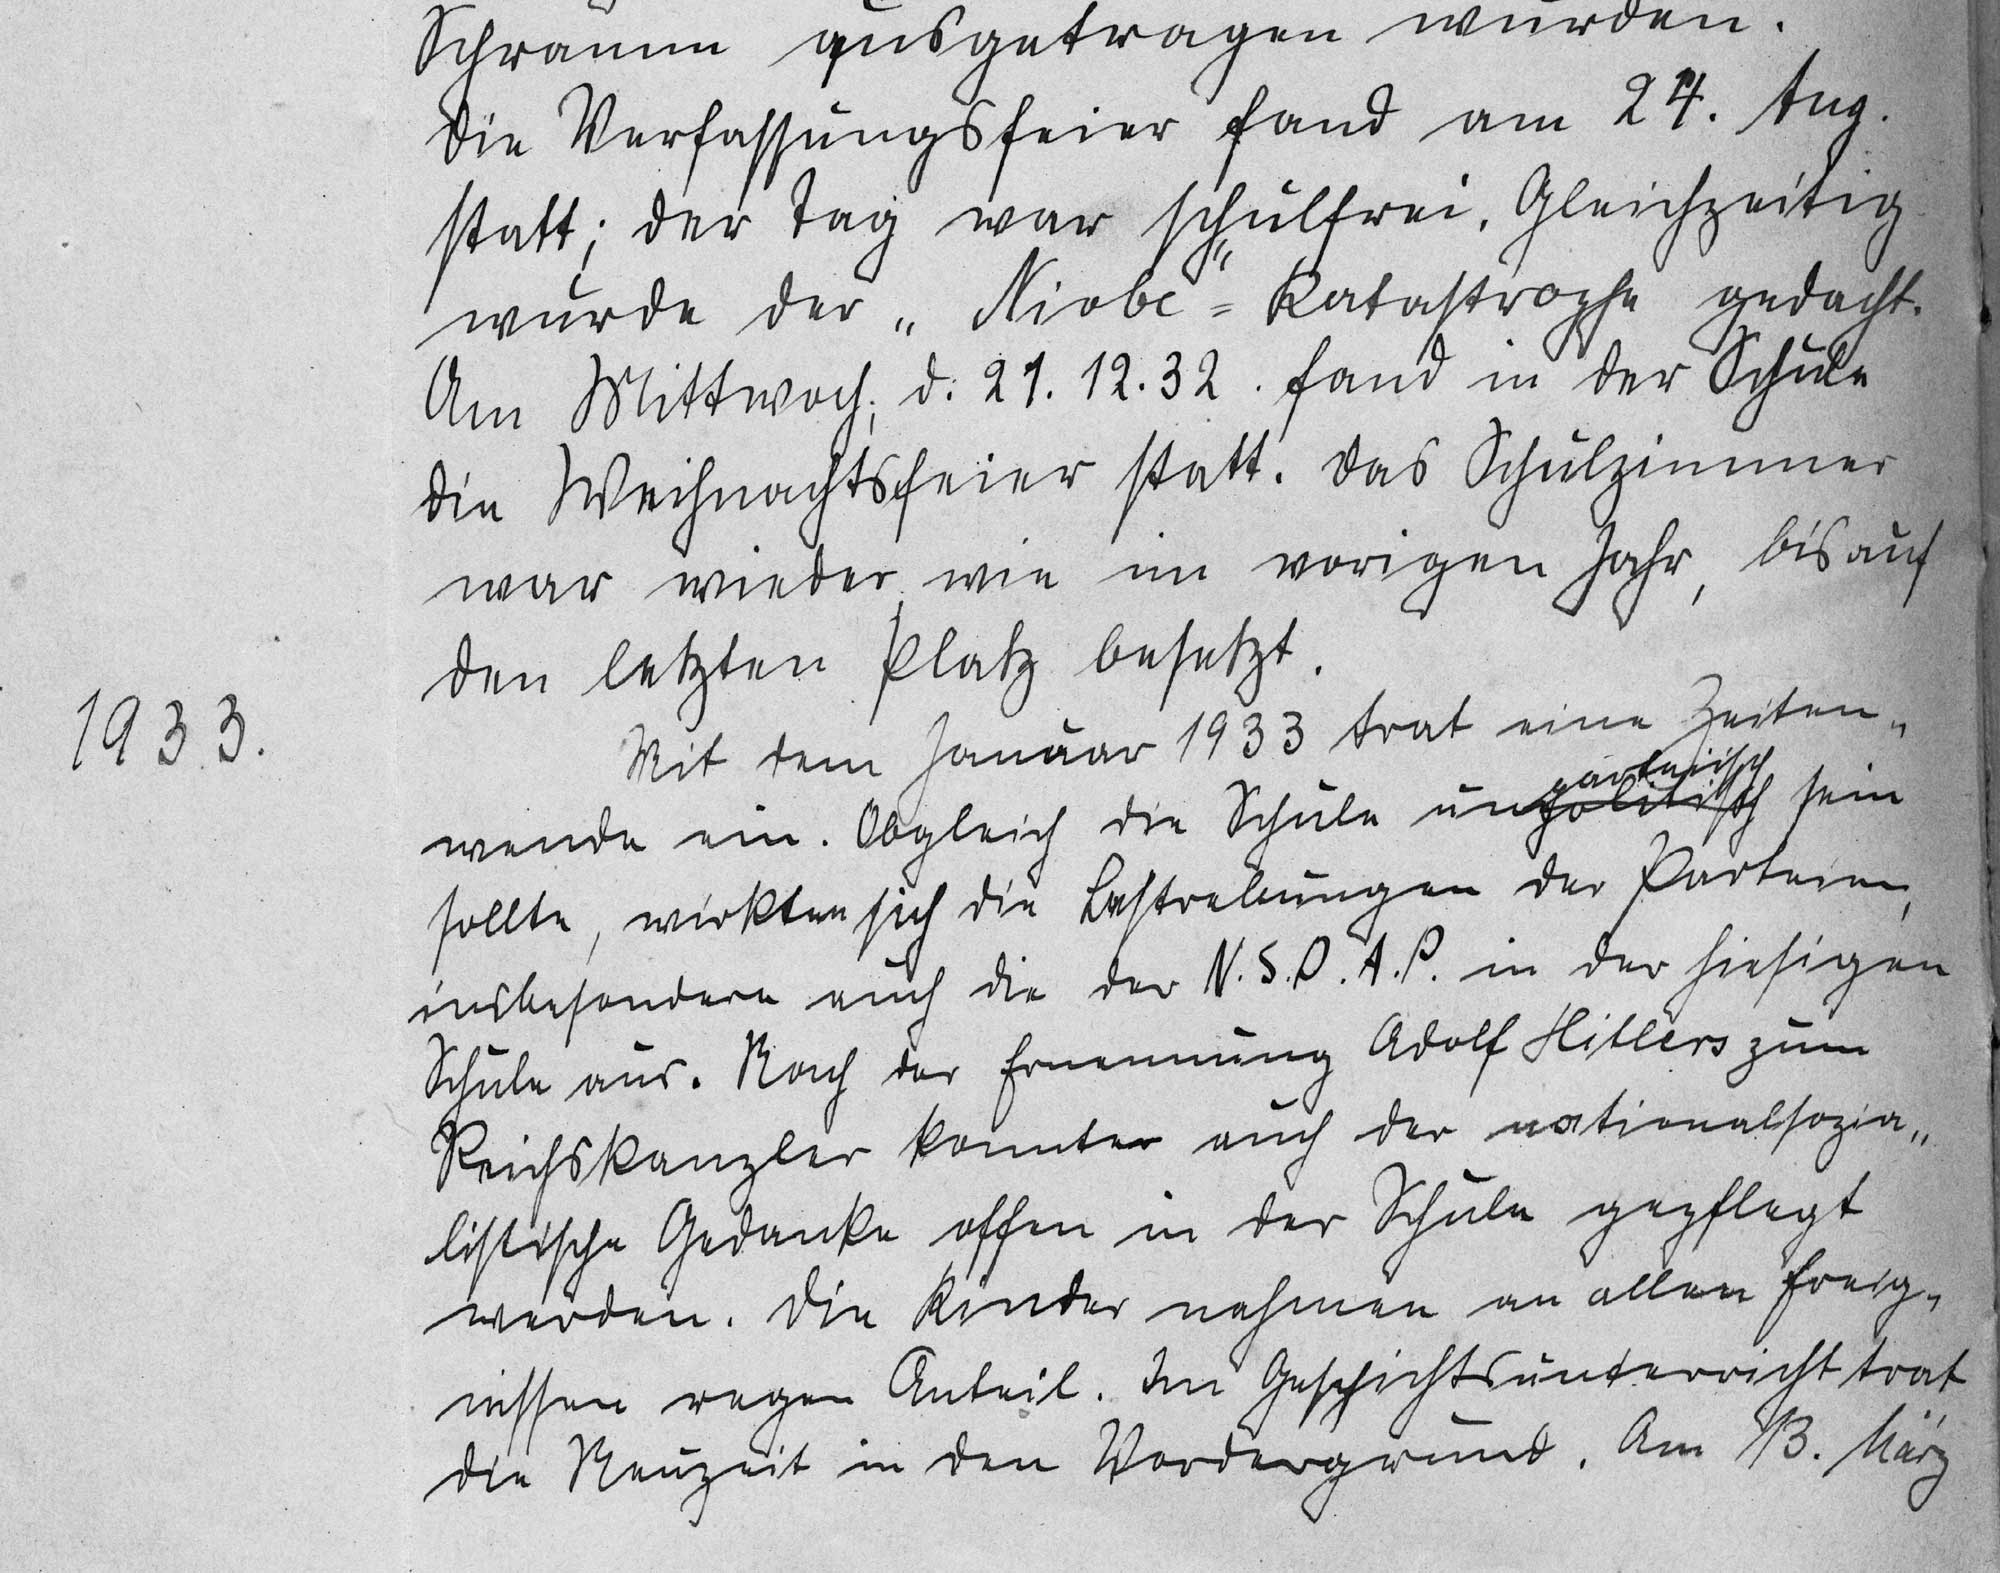 Schramm ausgetragen wurden.
Die Verfassungsfeier fand am 24. Aug.
statt; der Tag war schulfrei. Gleichzeitig
wurde der „Niobe"=Katastrophe gedacht.
Am Mittwoch, d. 21.12.32. fand in der Schule
die Weihnachtsfeier statt. Das Schulzimmer
war wieder, wie im vorigen Jahr, bis auf
den letzten Platz besetzt.
1933.
Mit dem Januar 1933 trat eine Zeiten-
parteiisch
wende ein. Obgleich die Schule unpolitisch sein
sollte, wirkten sich die Bestrebungen der Parteien,
insbesondere auch die der N.S.D.A.P. in der hiesigen
Schule aus. Nach der Ernennung Adolf Hitlers zum
Reichskanzler konnte auch der nationalsozia-
listische Gedanke offen in der Schule gepflegt
werden. Die Kinder nahmen an allen Ereig-
nissen regen Anteil. Im Geschichtsunterricht trat
die Neuzeit in den Vordergrund. Am 13. März